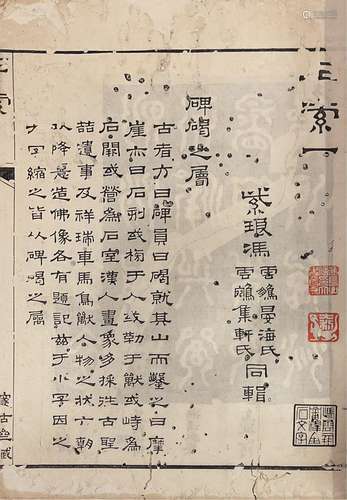 索一
紫琅馮
雲鵬晏海氏
雲鵷集軒氏
同輯
碑碣之屬
古者方曰碑員曰碣就其山而鑿之曰摩
崖亦曰石刻或于人或勒于獸或峙為
石闕或營為石室漢人畫象多採往古聖
喆遺事及祥瑞車馬鳥獸人物之狀六朝
以降意造佛像各有題記茲于小字因之
大字縮之皆以碑碣之屬